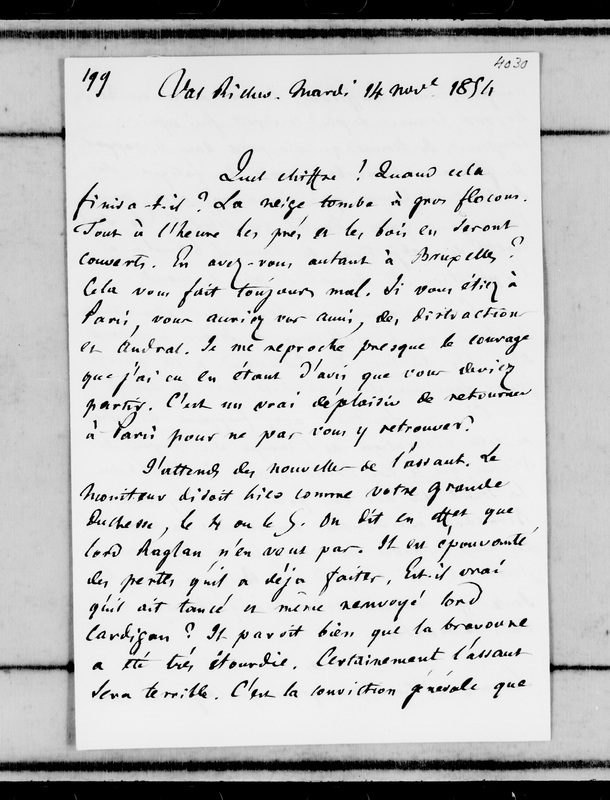 4030
199
Val Richer. Mardi 14 Novb. 1854
Quel chiffre ! Quand cela
finira-t-il ? La neige tombe à gros flocons.
Tout à l'heure les prés et les bois en seront
couverts. En avez-vous autant à Bruxelles ?
Cela vous fait toujours mal. Si vous étiez à
Paris, vous auriez vos amis, des distractions
et Andral. Je me reproche presque le courage
que j'ai eu en étant d'avis que vous deviez
partir. C'est un vrai déplaisir de retourner
à Paris pour ne pas vous y retrouver.
J'attends des nouvelles de l'assaut. Le
Moniteur disoit hier comme votre grande
Duchesse, le 4 ou le 5. On dit en effet que
lord Raglan n'en veut pas. Il est épouvanté
des pertes qu'il a déjà faites. Est-il vrai
qu'il ait tancé et même renvoyé lord
Cardigan ? Il paroit bien que la bravoure
a été très étourdie. Certainement l'assaut
sera terrible. C'est la conviction générale que